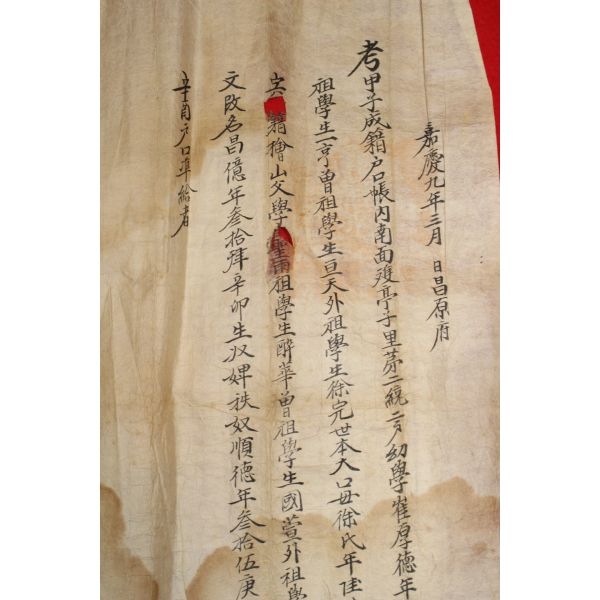 嘉慶九年三月 日昌原府
考甲子成籍户口帳內南面雙亭子里苐二統二户幼學崔厚德年
祖學生一亨曾祖學生亘天外祖學生徐完世本大口母徐氏年
籍檜山父學 祖學生醉華曾祖學生國萱外祖學
文改名昌億年叁拾肆辛卯生奴婢秩奴順德年叁拾伍庚
辛酉户口準給者